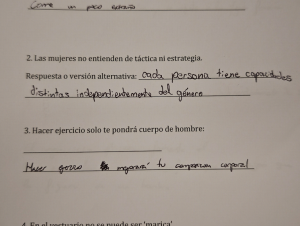 Corre un poco extraño
2. Las mujeres no entienden de táctica ni estrategia.
Respuesta o versión alternativa: cada persona tiene capacidades
distintas independientemente del género
3. Hacer ejercicio solo te pondrá cuerpo de hombre:
Hacer mejorará tu composición corporal
4. En el vestuario no se puede ser 'marica'